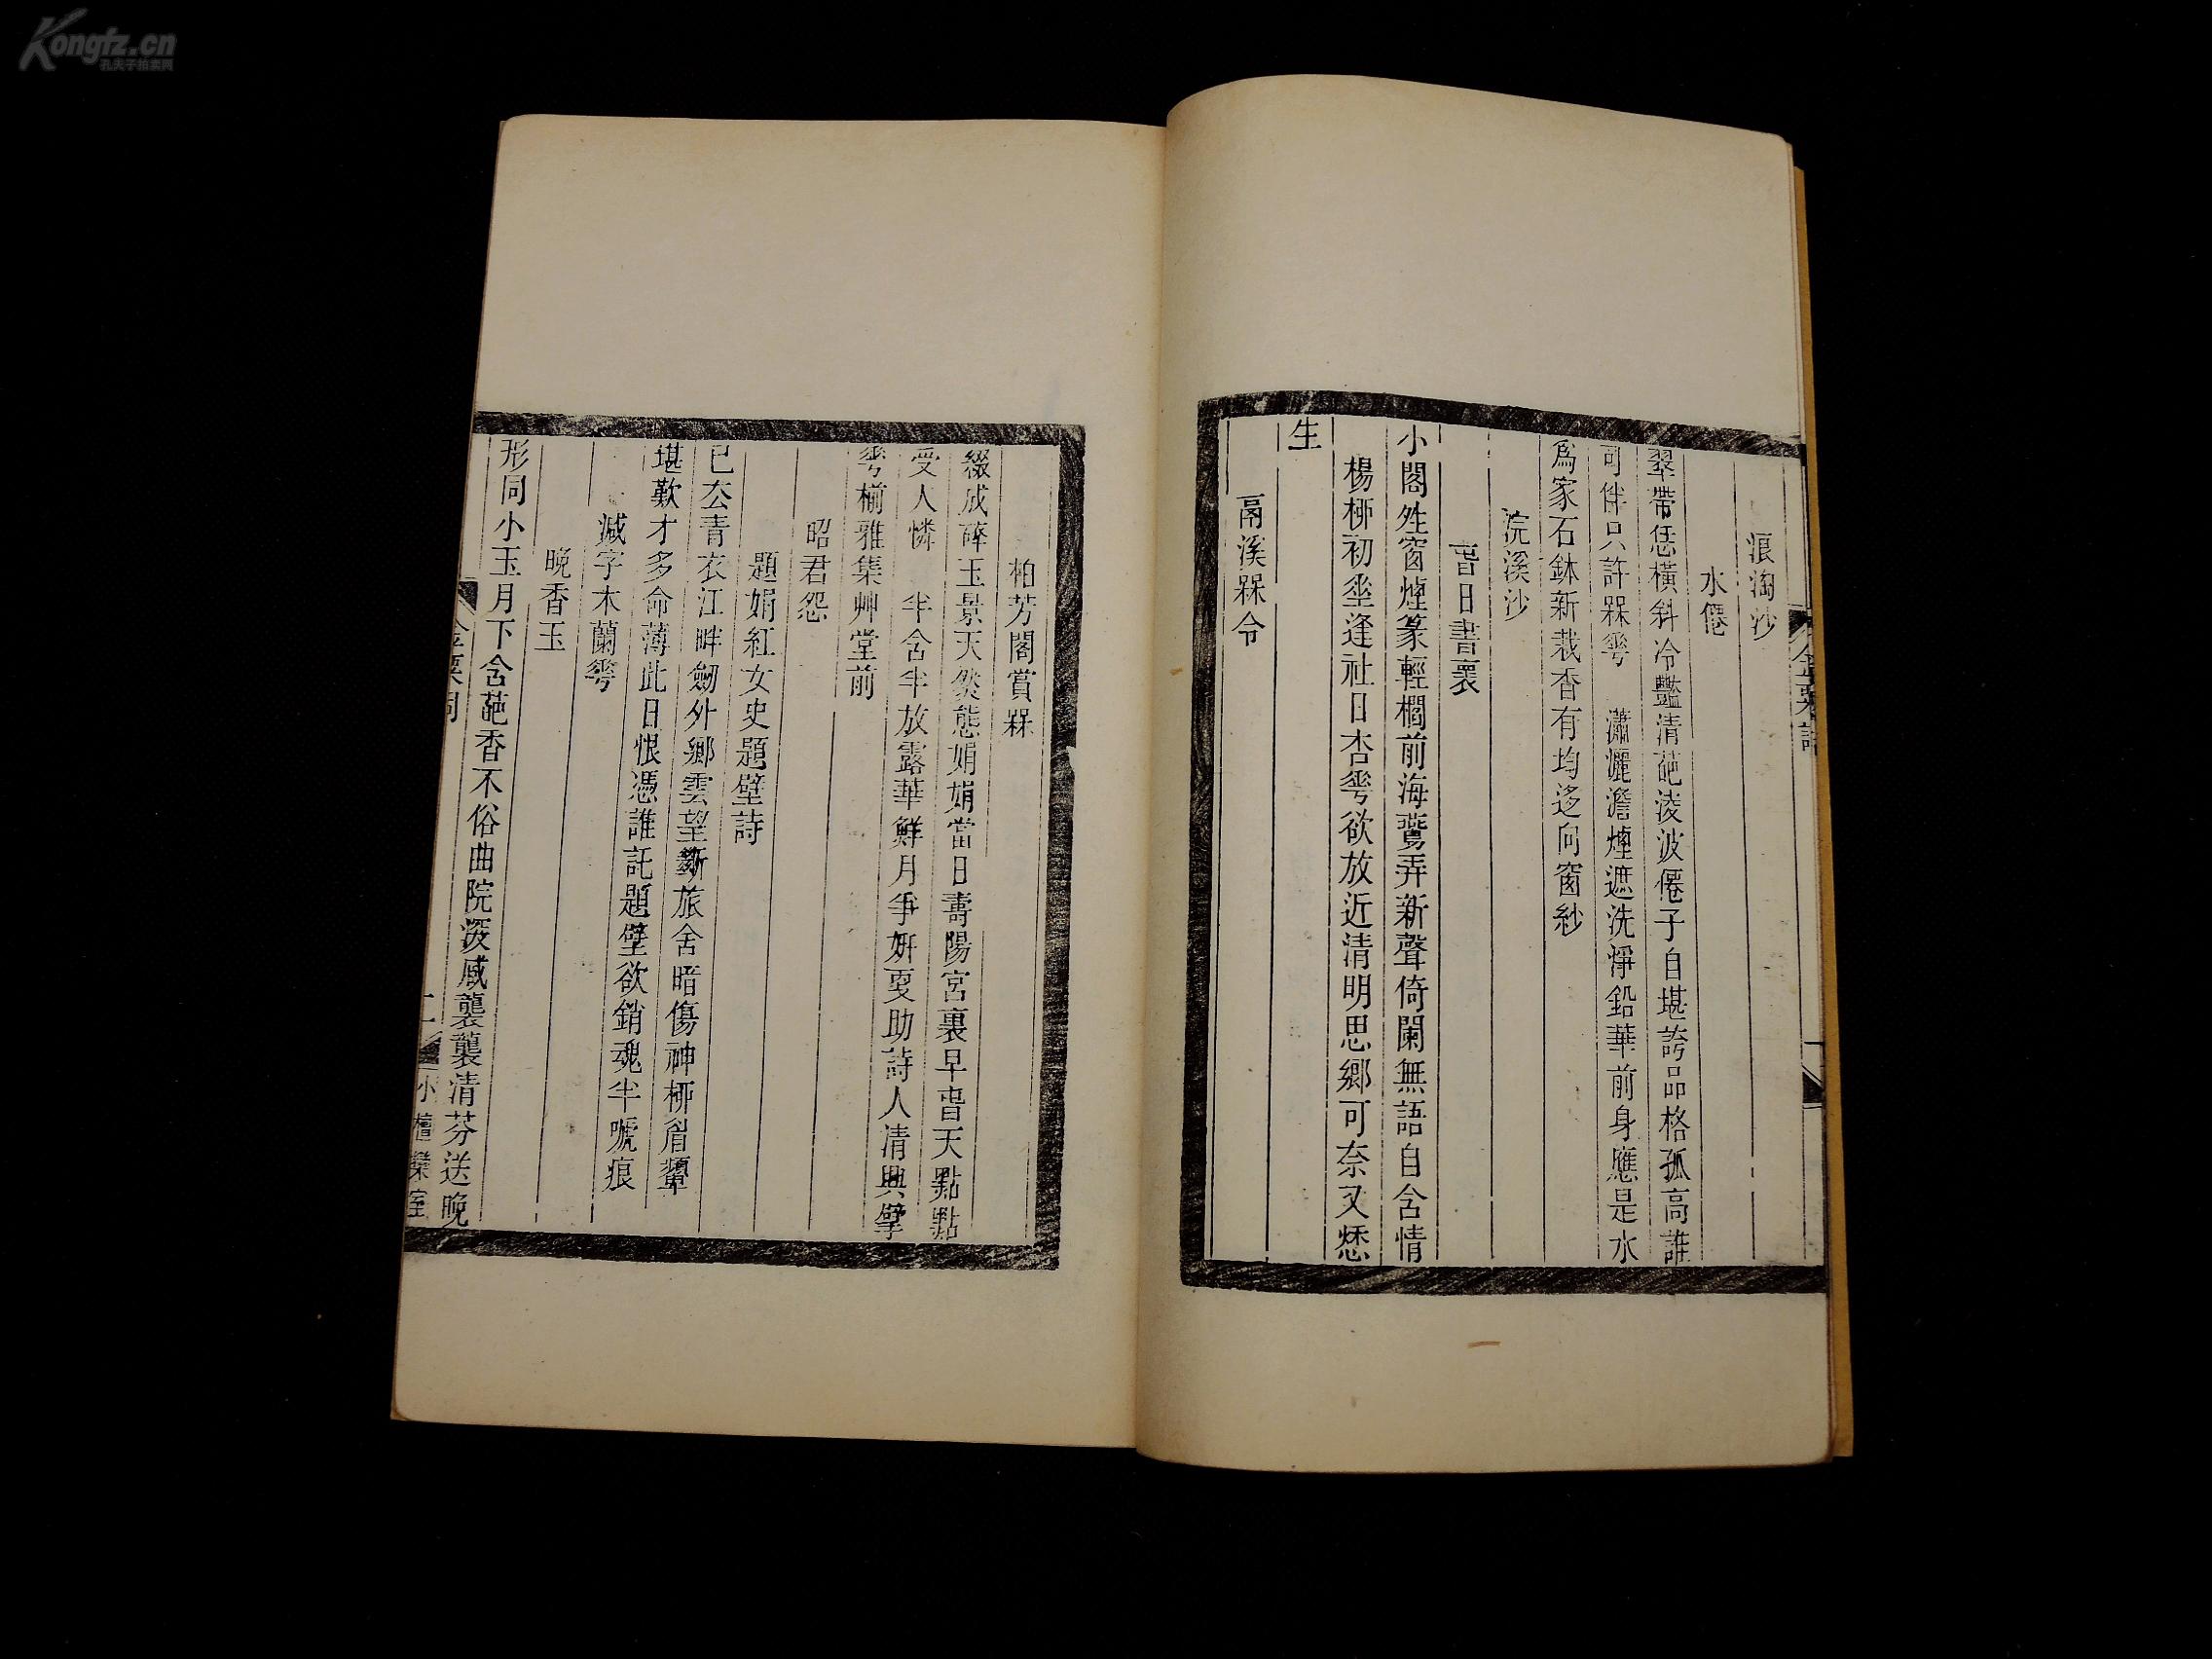 Kongfz.cn
孔夫子拍卖网
浪淘沙
水僊
翠帶恁橫斜冷豔清葩淩波僊子自堪誇品格孤高誰
可伴只許槑蕚 瀟灑澹煙遮洗淨鉛華前身應是水
爲家石鉢新栽香有均迻向窗紗
浣溪沙
旾日書褱
小閣姓窗煙篆輕櫩前海鷰弄新聲倚闌無語自含情
楊桺初坙逢社日杏蕚欲放近清明思鄉可奈又愁
生
鬲溪槑令
柏芳閣賞槑
綴成碎玉景天然態娟娟當日壽陽宮裏早旾天點點
受人憐 半含半放露華鮮月爭姸叓助詩人清興擘
蕚櫛雅集艸堂前
昭君怨
題娟紅女史題壁詩
已厺青衣江畔劒外鄉雲望斷旅舍暗傷神桺眉顰
堪歎才多命薄此日恨憑誰託題壁欲銷魂半嗁痕
減字木蘭蕚
晚香玉
形同小玉月下含葩香不俗曲院深感襲襲清芬送晚
金粟詞
二
小檀欒室